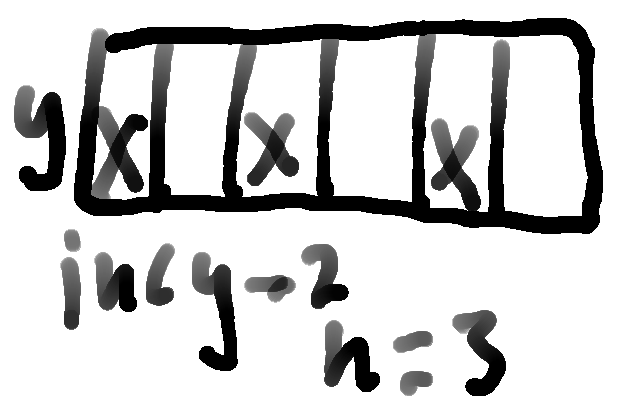 y X X X
incy=2
n=3